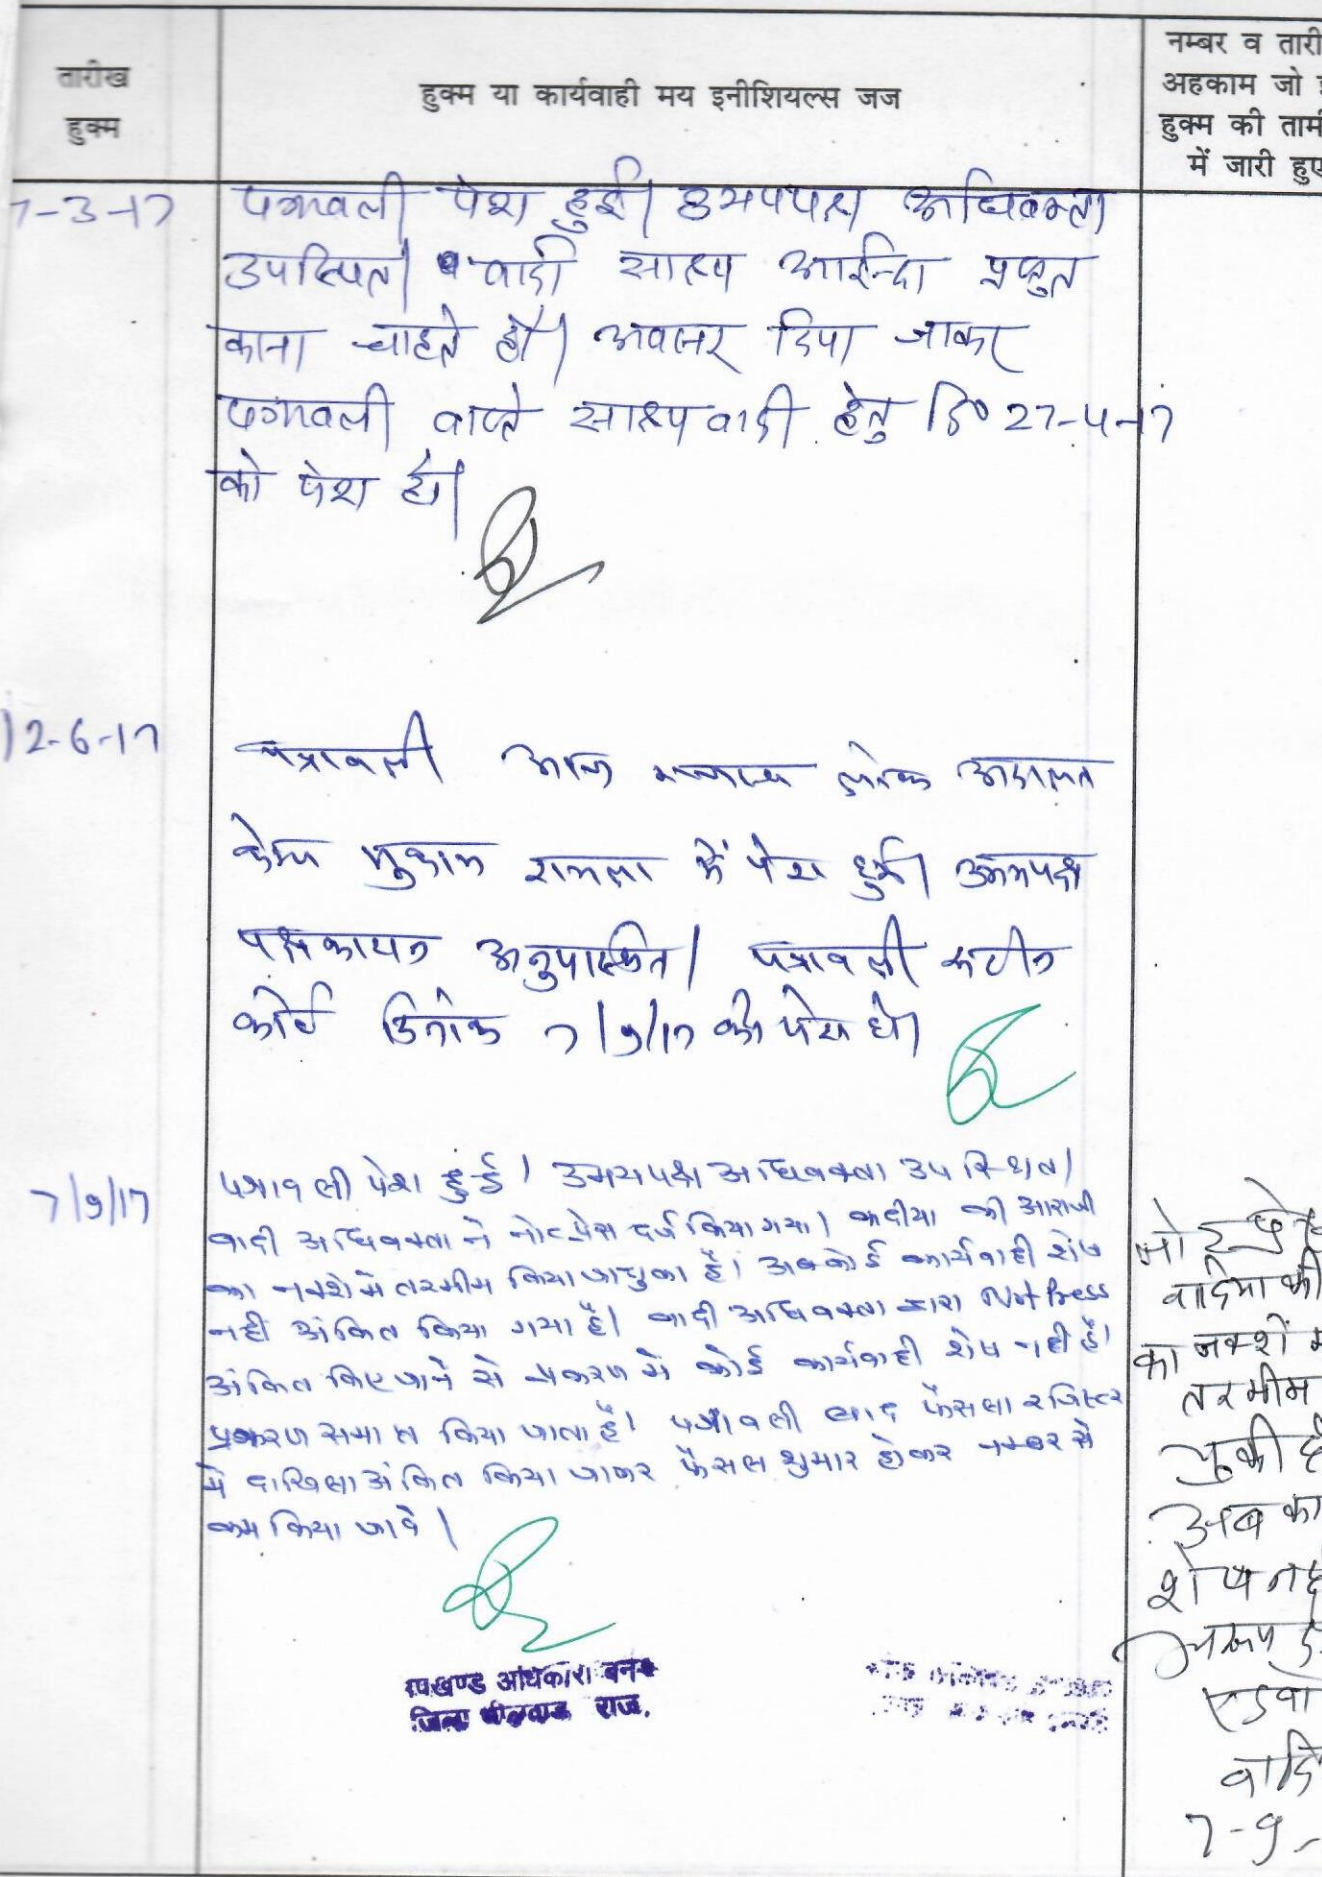 तारीख
हुक्म
हुक्म या कार्यवाही मय इनीशियल्स जज
नम्बर व तारी
अहकाम जो
हुक्म की तामी
में जारी हुए
7-3-17
पत्रावली पेश हुई। उभयपक्ष अधिवक्ता
उपस्थित। वादी साक्ष्य आईन्दा प्रस्तुत
करना चाहते है। अवसर दिया जाकर
पत्रावली वास्ते साक्ष्य वादी हेतु दि० 27-4-17
को पेश हो।
12-6-17
पत्रावली आज लोक अदालत
केम्प मुकाम में पेश हुई। उभयपक्ष
पक्षकारान अनुपस्थित। पत्रावली रूटीन
कोर्ट दिनांक 7/9/17 को पेश हो।
7/9/17
पत्रावली पेश हुई। उभयपक्ष अधिवक्ता उपस्थित।
वादी अधिवक्ता ने नोटप्रेस दर्ज किया गया। वादीया की आराजी
का नक्शे में तरमीम किया जा चुका है। अब कोई कार्यवाही शेष
नही अंकित किया गया है। वादी अधिवक्ता द्वारा Not Press
अंकित किए जाने से प्रकरण में कोई कार्यवाही शेष नही है।
प्रकरण समाप्त किया जाता है। पत्रावली बाद फैसला रजिस्टर
मे दाखिला अंकित किया जाकर फैसल शुमार होकर नम्बर से
कम किया जावे।
उपखण्ड अधिकारी बनेड़ा
जिला भीलवाड़ा राज.
वादिया की
का नक्शों म
तरमीम
चुकी है
अब का
शेष नह
एडवो
वादि
7-9-